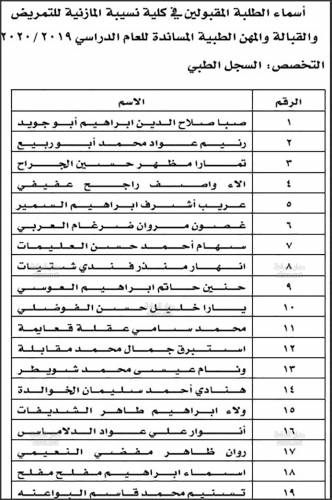 أسماء الطلبة المقبولين في كلية نسيبة المازنية للتمريض
والقبالة والمهن الطبية المساندة للعام الدراسي ٢٠١٩/ ٢٠٢٠
التخصص: السجل الطبي
الرقم الاسم
١ صبا صلاح الدين ابراهيم أبو جويد
٢ رنيم عواد محمد أبو ربيع
٣ تمارا مظهر حسين الجراح
٤ الاء واصف راجح عفيفي
٥ عريب أشرف ابراهيم السمير
٦ غصون مروان ضرغام العربي
٧ سهام أحمد حسن العليمات
٨ انهار منذر فندي شتيات
٩ حنين حاتم ابراهيم العوسي
١٠ يارا خليل حسن الفوضلي
١١ محمد سامي عقلة قعايمة
١٢ استبرق جمال محمد مقابلة
١٣ ونام عيسى محمد شويطر
١٤ هنادي أحمد سليمان الخوالدة
١٥ ولاء ابراهيم طاهر الشديفات
١٦ أنوار علي عواد الدلاماس
١٧ روان ظاهر مفضي النعيمي
١٨ اسماء ابراهيم مفلح مفلح
١٩ تسنيم محمد قاسم البواعنه